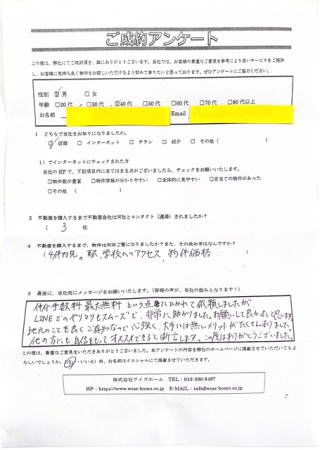 ご成約アンケート
この度は、弊社にてご成約頂き、誠にありがとうございます。当社では、お客様の貴重なご意見を参考により良いサービスをご提供し、
お客様に気持ち良く物件をお探しいただけるよう努めて参りたいと思っております。ぜひアンケートにご協力ください。
性別 ☑男 □女
年齢 □20代 □30代 ☑40代 □50代 □60代 □70代 □80代以上
お名前 Email
1 どちらで当社をお知りになりましたか。
☑店頭 □インターネット □チラシ □紹介 □その他( )
1)でインターネットにチェックされた方
当社のHPで、下記項目内に当てはまる点がございましたら、チェックをお願いいたします。
□物件数が豊富 □物件情報が分かりやすい □全体的に見やすい □目当ての物件があった
□その他( )
3 不動産を購入するまで不動産会社は何社とコンタクト(連絡)されましたか?
( 3 社 )
4 不動産を購入するまで、物件は何件ご覧になりましたか?また、その決め手はなんですか?
(4件内見。駅、学校へのアクセス、物件価格 )
5 最後に、当社宛にメッセージをお願いいたします。(皆様の声が、当社の励みとなります!)
仲介手数料最大無料という点にひかれて依頼しましたが
LINEでのやりとりもスムーズで、非常に助かりました。お願いして良かったと思います
地元のことも良くご存知なので心強く、大手には無いメリットがたくさんありました
他の方にも自信をもってオススメできると断言します。この度はありがとうございました。
この度は、貴重なご意見をいただきありがとうございました。本アンケートの内容を弊社のホームページに掲載させていただいてもよろしいでしょうか。
(はい・いいえ) 尚、お名前はイニシャルにて掲載させていただきます。
株式会社ワイズホーム TEL:043-306-5497
HP:https://www.wise-home.co.jp E-MAIL:info@wise-home.co.jp